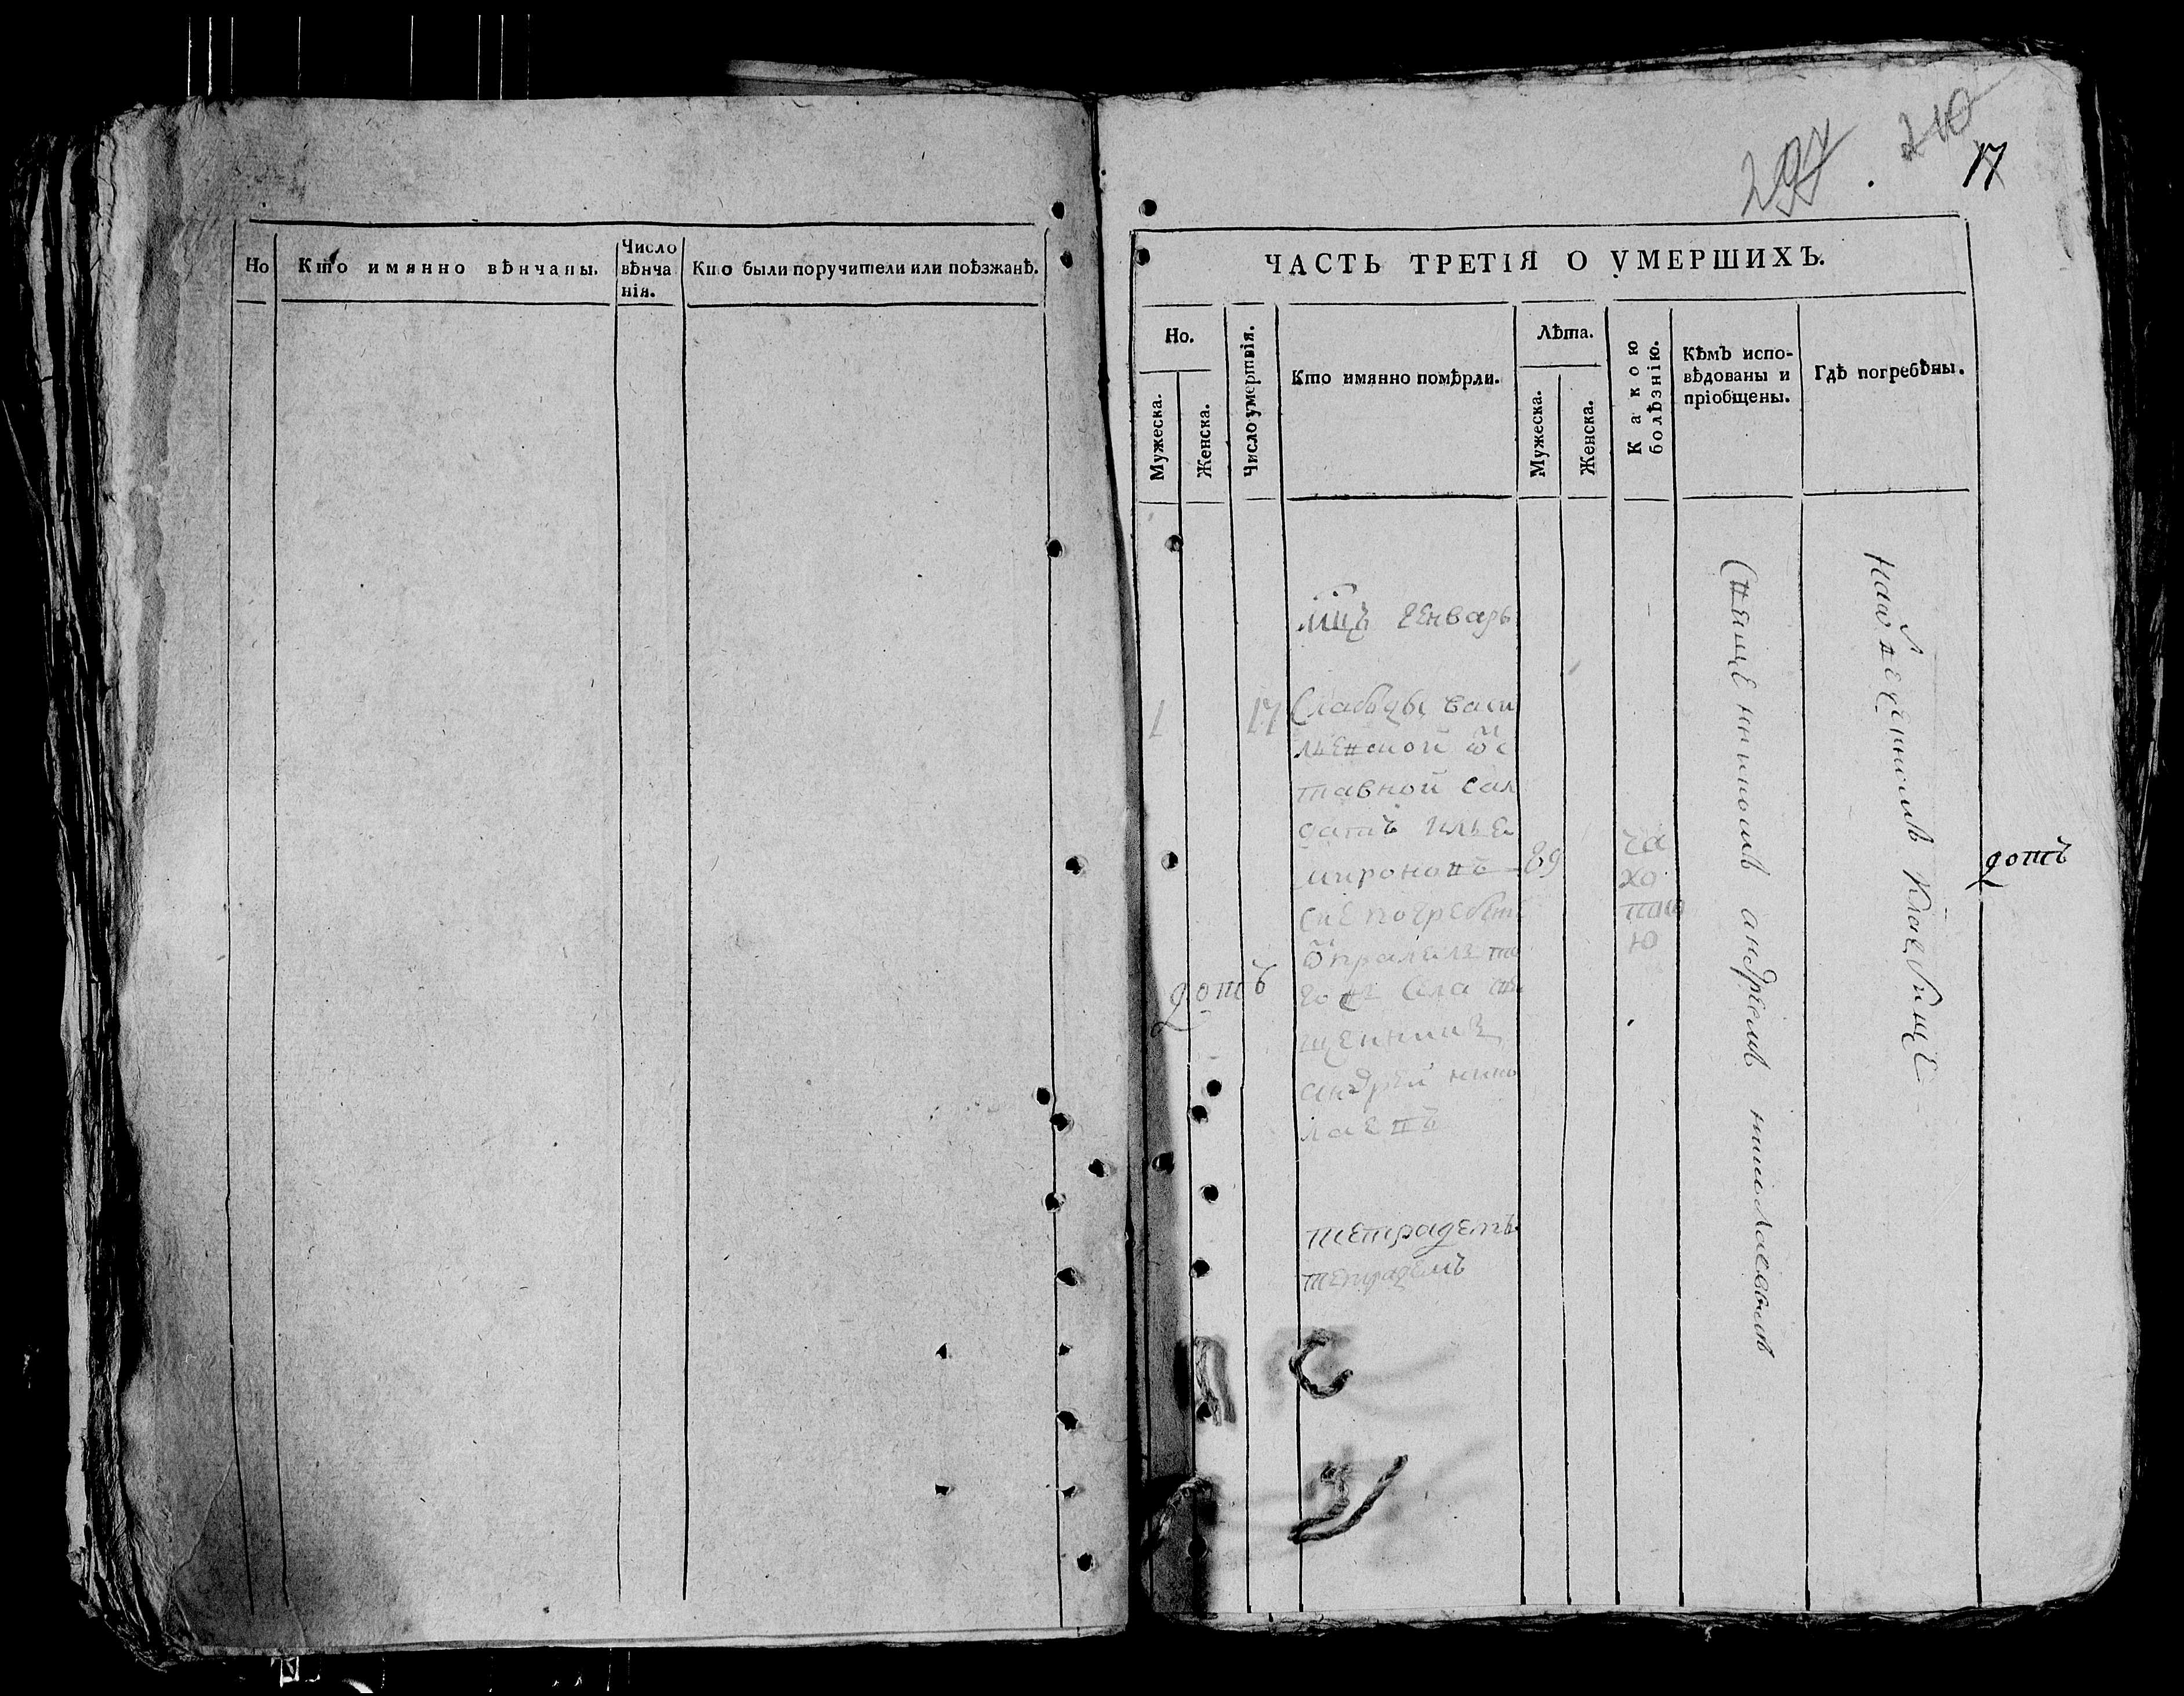 Но
Кто имянно вѣнчаны.
Число
вѣнча
нія.
Кто были поручители или поѣзжанѣ.
297
210
17
ЧАСТЬ ТРЕТІЯ О УМЕРШИХЪ.
Но.
Мужеска.
Женска.
Число умертвія.
Кто имянно помѣрли.
Лѣта.
Мужеска.
Женска.
Какою
болѣзнію.
Кѣмъ испо-
вѣдованы и
пріобщены.
Гдѣ погребѣны.
мцъ генварь
1
17
Слабоды васи
ѿс
тавной сал
датъ илья
мироновъ
89
сие погребѣ
ѿправлялъ то
гожъ села свя
щенникъ
андрей нико
лаевъ
ча
хо
тко
ю
Священникомъ андреемъ николаевымъ
на кладбище
дотъ
дотъ
тетрадемъ
тетрадемъ